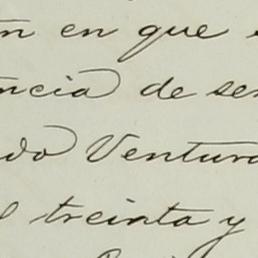 ón en que
encia de ser
ado Ventura
l treinta y